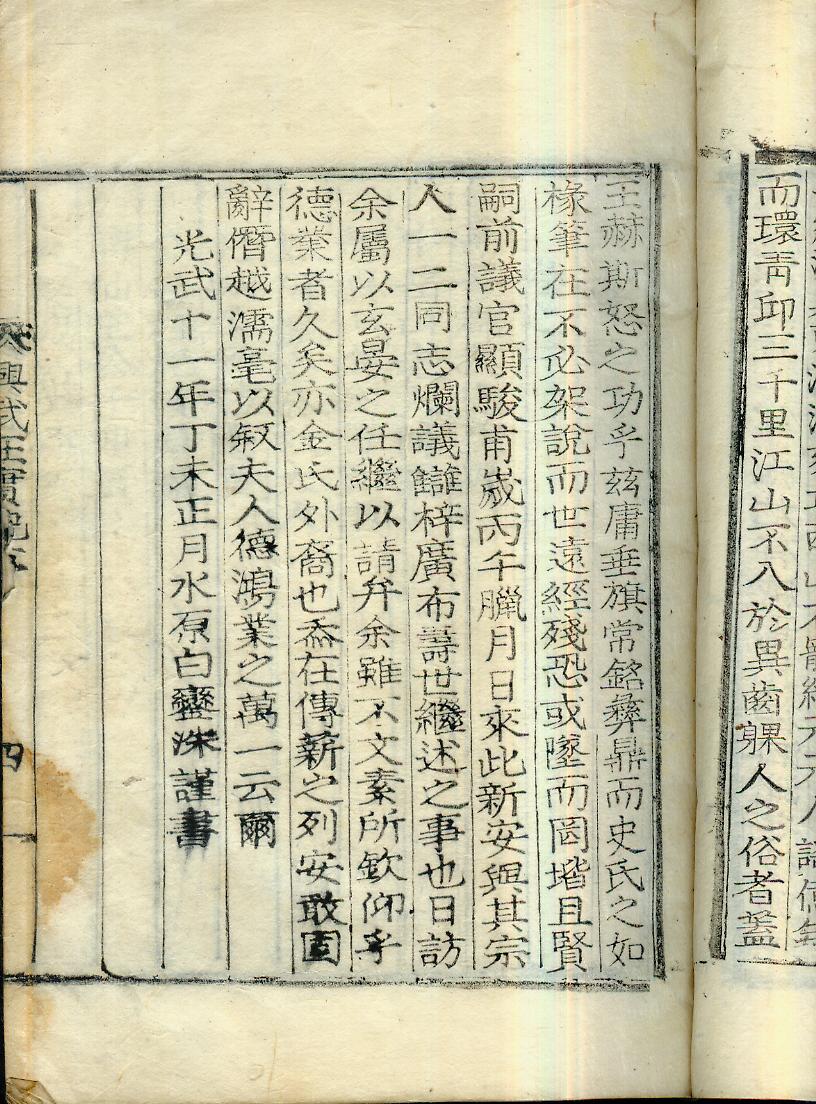 而環靑邱三千里江山不入於異齒躶人之俗者蓋
王赫斯怒之功乎玆庸垂旗常銘彝鼎而史氏之如
椽筆在不必架說而世遠經殘恐或墜而罔堦且賢
嗣前議官顯駿甫歲丙午臘月日來此新安與其宗
人一二同志爛議讎梓廣布壽世繼述之事也日訪
余屬以玄晏之任繼以請弁余雖不文素所欽仰乎
德業者久矣亦金氏外裔也忝在傳薪之列安敢固
辭僭越濡毫以敍夫人德鴻業之萬一云爾
光武十一年丁未正月水原白 洙謹書
興武王實 序
四